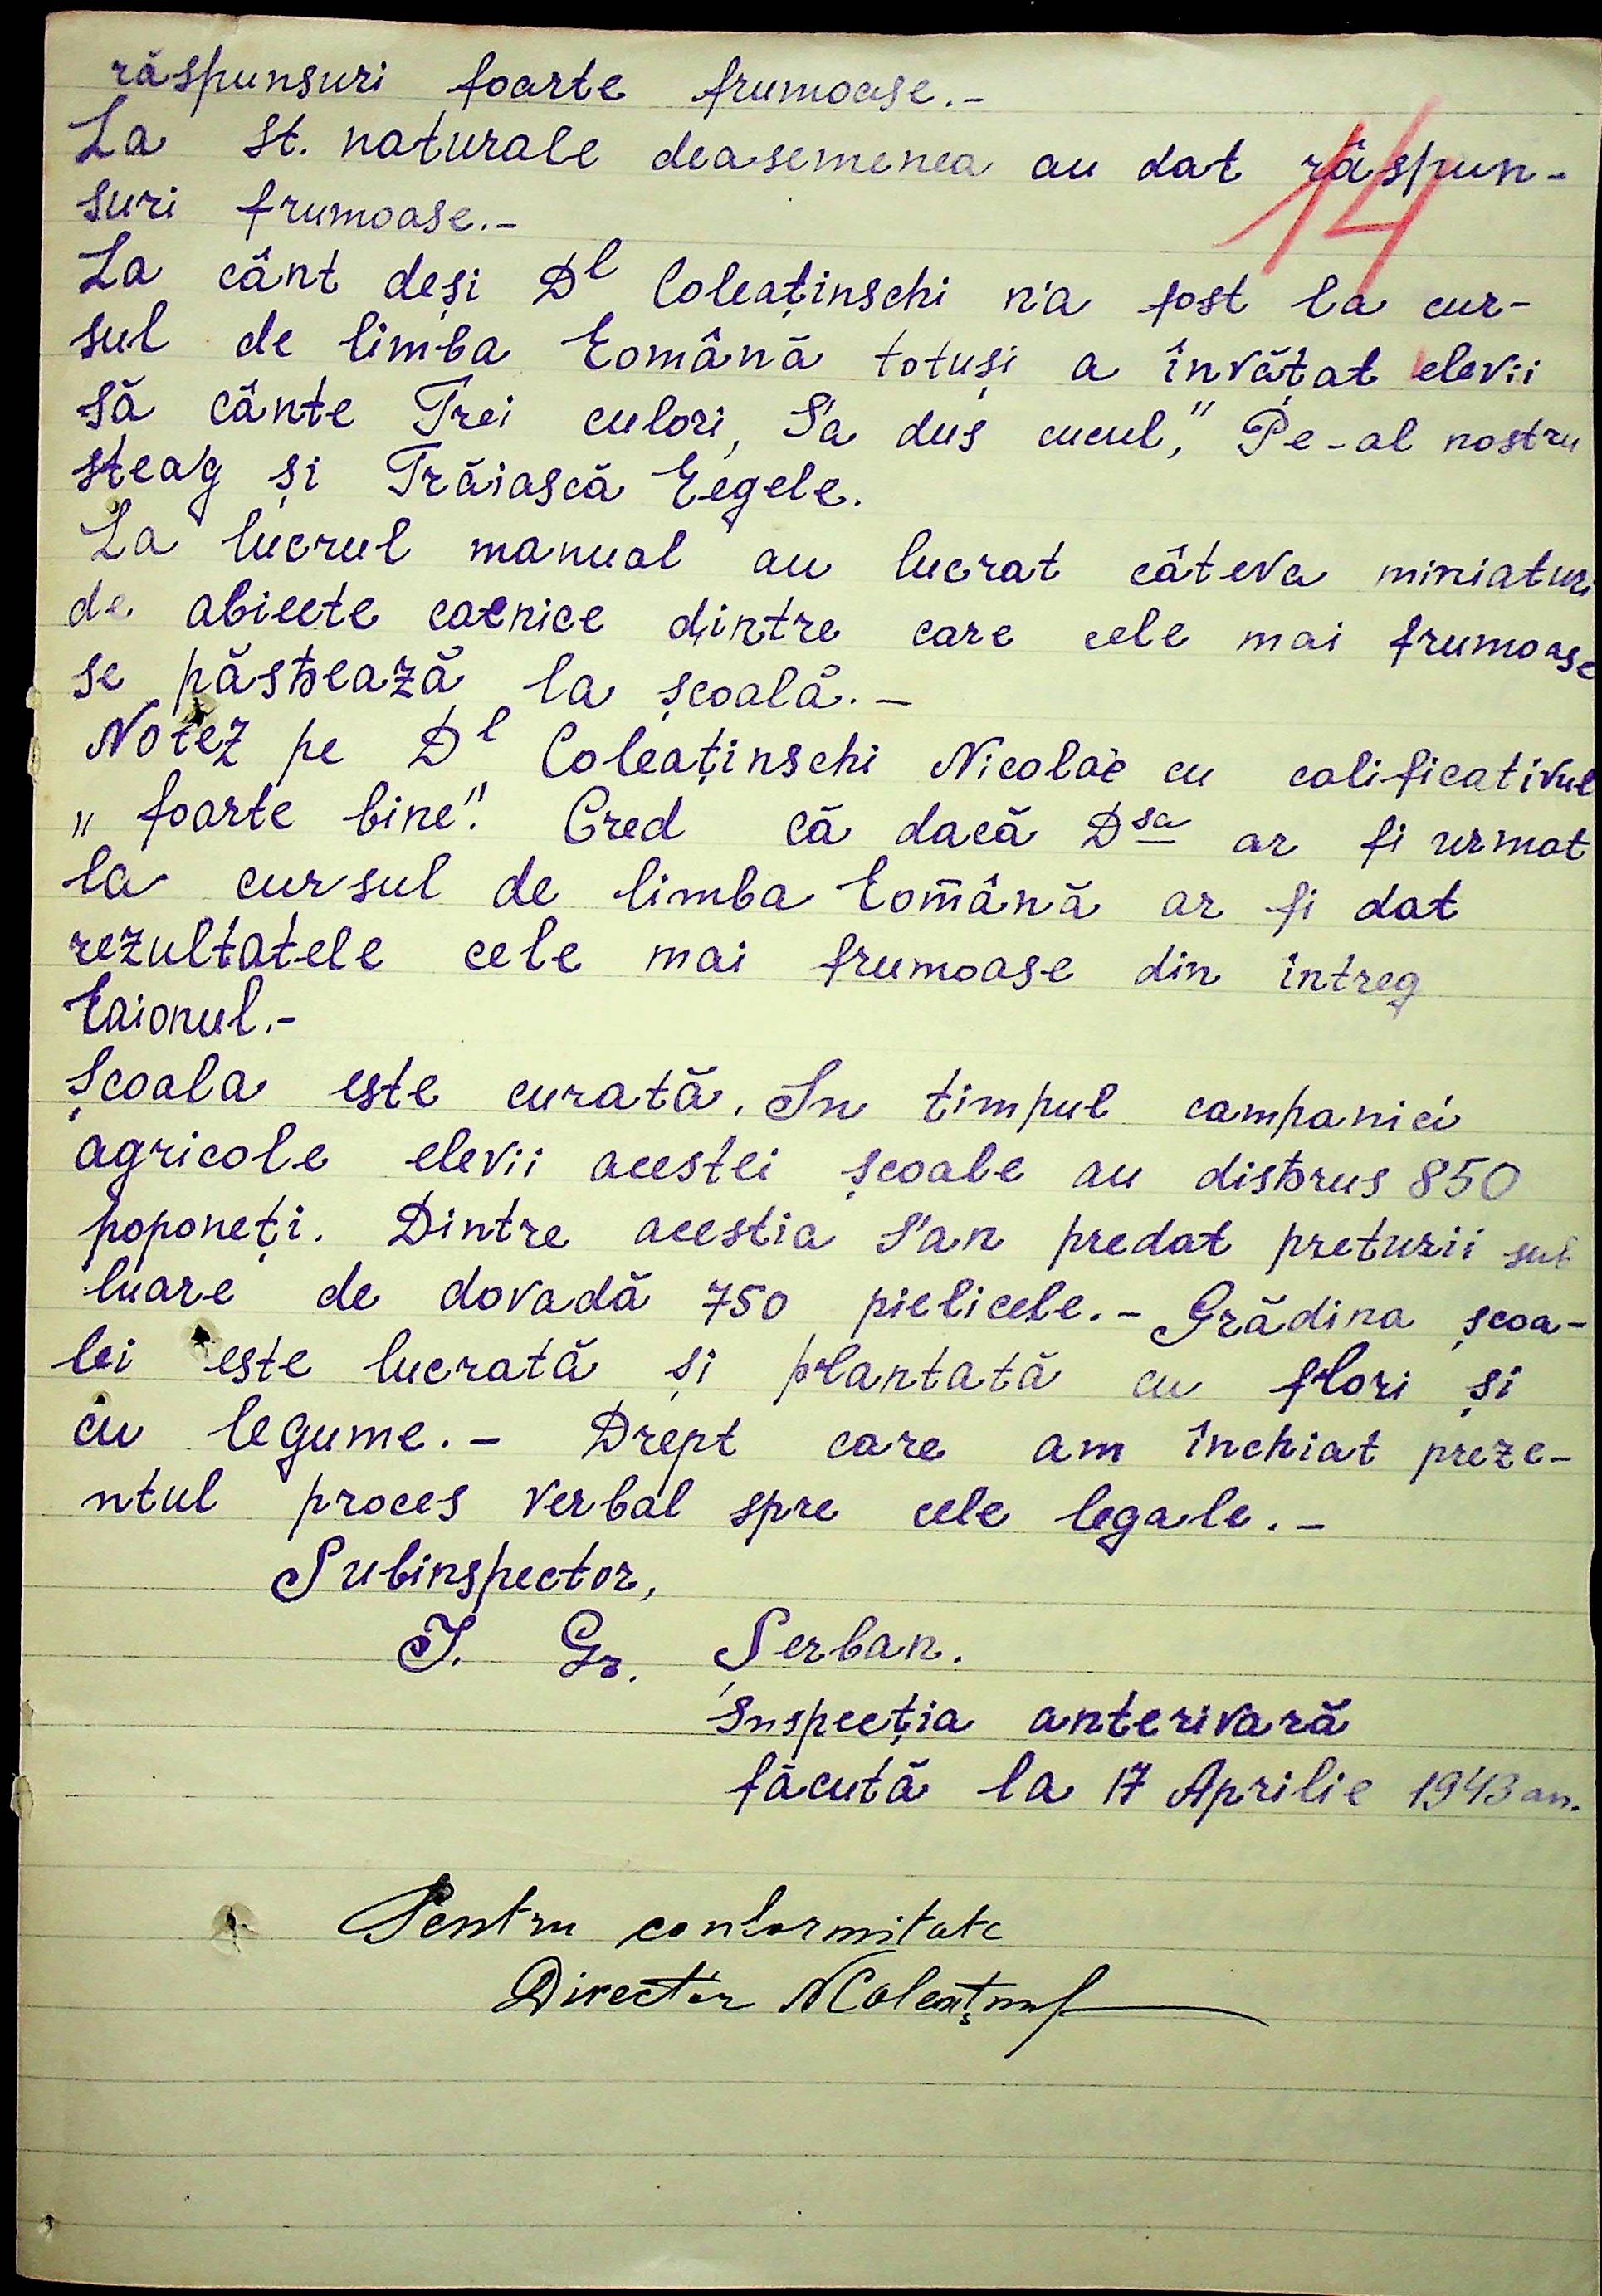 răspunsuri foarte frumoase.-
14
La st. naturale deasemenea au dat răspun-
suri frumoase.-
La cânt deși Dl Coleaținschi n'a fost la cur-
sul de limba Română totuși a învățat elevii
să cânte Trei culori, S'a dus cucul," Pe-al nostru
steag și Trăiască Regele.
La lucrul manual au lucrat câteva miniaturi
de abiecte casnice dintre care cele mai frumoase
se păstrează la școală.-
Notez pe Dl Coleaținschi Nicolae cu calificativul
„foarte bine". Cred că dacă Dsa ar fi urmat
la cursul de limba Română ar fi dat
rezultatele cele mai frumoase din întreg
Raionul.-
Școala este curată. In timpul campaniei
agricole elevii acestei școale au distrus 850
poponeți. Dintre acestia s'an predat preturii sub
luare de dovadă 750 pielicele.- Grădina școa-
lei este lucrată și plantată cu flori și
cu legume.- Drept care am închiat preze-
ntul proces verbal spre cele legale.-
Subinspector,
I. Gr. Șerban.
Inspecția anterivară
făcută la 17 Aprilie 1943 an.
Pentru conformitate
Director